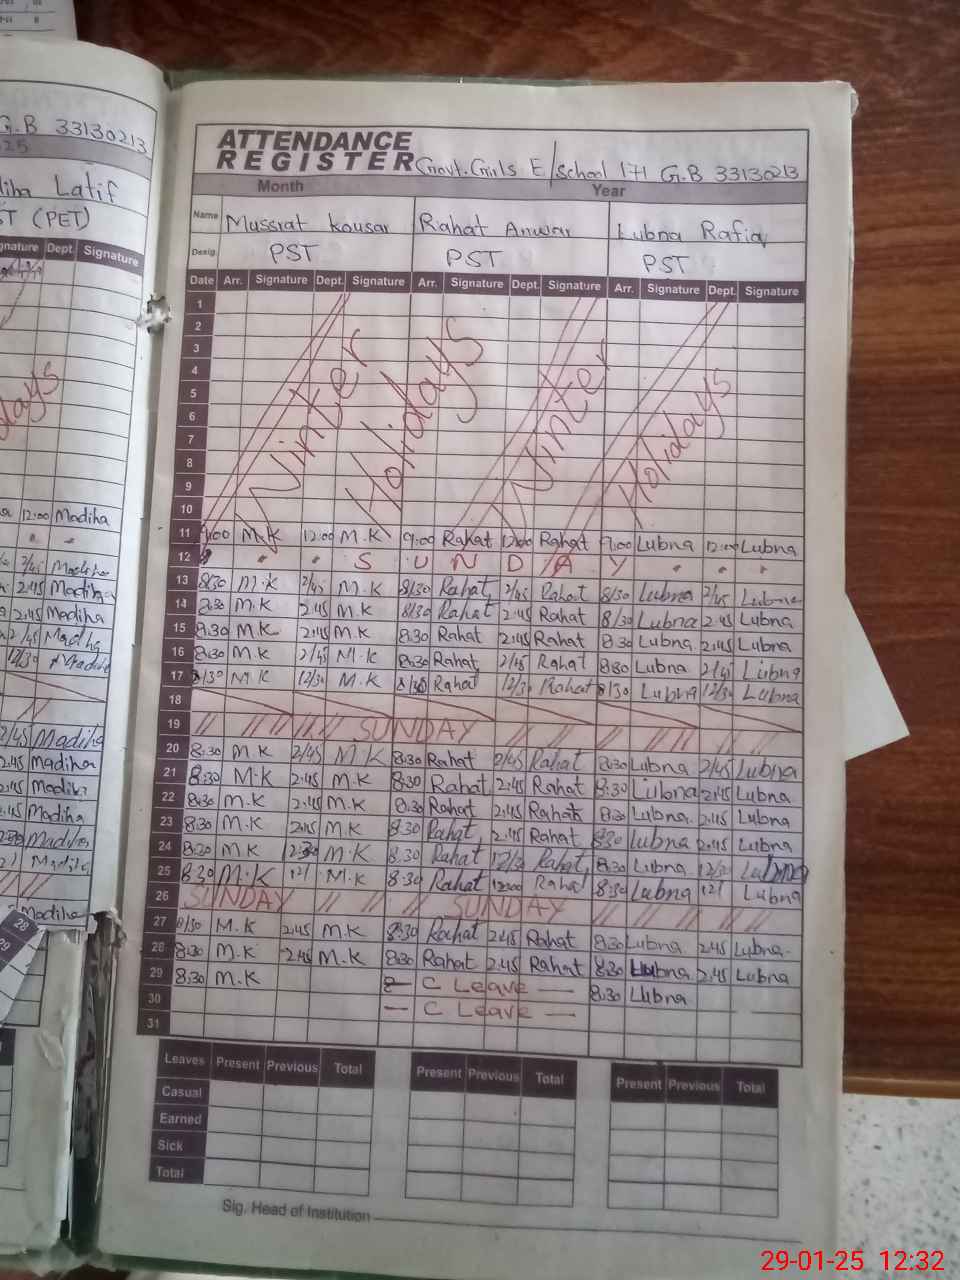 G.B 33130213
Latif
(PET)
Signature Dept. Signature
12:00 Madiha
2/45 Madiha
2:45 Madiha
2:45 Madiha
2/45 Madiha
12/30 Madiha
2/45 Madiha
2:45 Madiha
2:45 Madiha
Madiha
Madiha
Madiha
Madiha
28
29
ATTENDANCE
REGISTER Govt. Girls E/School 171 G.B 33130213
Month Year
Name Mussrat Kousar Rahat Anwar Lubna Rafiq
Desig. PST PST PST
Date Arr. Signature Dept. Signature Arr. Signature Dept. Signature Arr. Signature Dept. Signature
1
2
3
4
5
6
7
8
9
10
Winter Holidays Winter Holidays
11 9:00 M.K 12:00 M.K 9:00 Rahat 12:00 Rahat 9:00 Lubna 12:00 Lubna
12 S U N D A Y
13 8/30 M.K 2/45 M.K 8/30 Rahat 2/45 Rahat 8/30 Lubna 2/45 Lubna
14 8:30 M.K 2:45 M.K 8/30 Rahat 2:45 Rahat 8/30 Lubna 2:45 Lubna
15 8:30 M.K 2:45 M.K 8:30 Rahat 2:45 Rahat 8:30 Lubna 2:45 Lubna
16 8:30 M.K 2/45 M.K 8:30 Rahat 2/45 Rahat 8:30 Lubna 2/45 Lubna
17 8/30 M.K 12/30 M.K 8/30 Rahat 12/30 Rahat 8/30 Lubna 12/30 Lubna
18
19 SUNDAY
20 8:30 M.K 2/45 M.K 8:30 Rahat 2/45 Rahat 8:30 Lubna 2/45 Lubna
21 8:30 M.K 2:45 M.K 8:30 Rahat 2:45 Rahat 8:30 Lubna 2:45 Lubna
22 8:30 M.K 2:45 M.K 8:30 Rahat 2:45 Rahat 8:30 Lubna 2:45 Lubna
23 8:30 M.K 2:45 M.K 8:30 Rahat 2:45 Rahat 8:30 Lubna 2:45 Lubna
24 8:30 M.K 12:30 M.K 8:30 Rahat 12/30 Rahat 8:30 Lubna 12/30 Lubna
25 8:30 M.K 12/ M.K 8:30 Rahat 12:00 Rahat 8:30 Lubna 12/ Lubna
26 SUNDAY SUNDAY
27 8/30 M.K 2:45 M.K 8:30 Rahat 2:45 Rahat 8:30 Lubna 2:45 Lubna
28 8:30 M.K 2:45 M.K 8:30 Rahat 2:45 Rahat 8:30 Lubna 2:45 Lubna
29 8:30 M.K — C Leave — 8:30 Lubna
30 — C Leave —
31
Leaves Present Previous Total Present Previous Total Present Previous Total
Casual
Earned
Sick
Total
Sig. Head of Institution
29-01-25 12:32